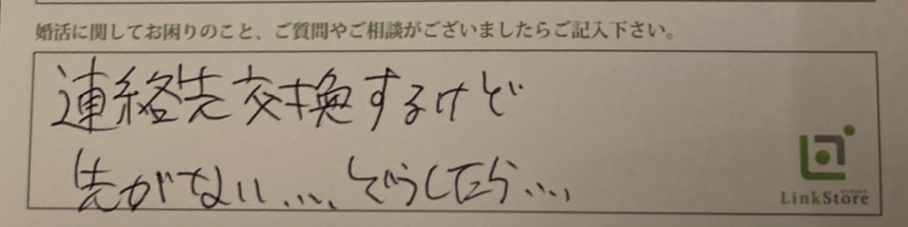 婚活に関してお困りのこと、ご質問やご相談がございましたらご記入下さい。
連絡先交換するけど
先がない....どうしたら....
LinkStore